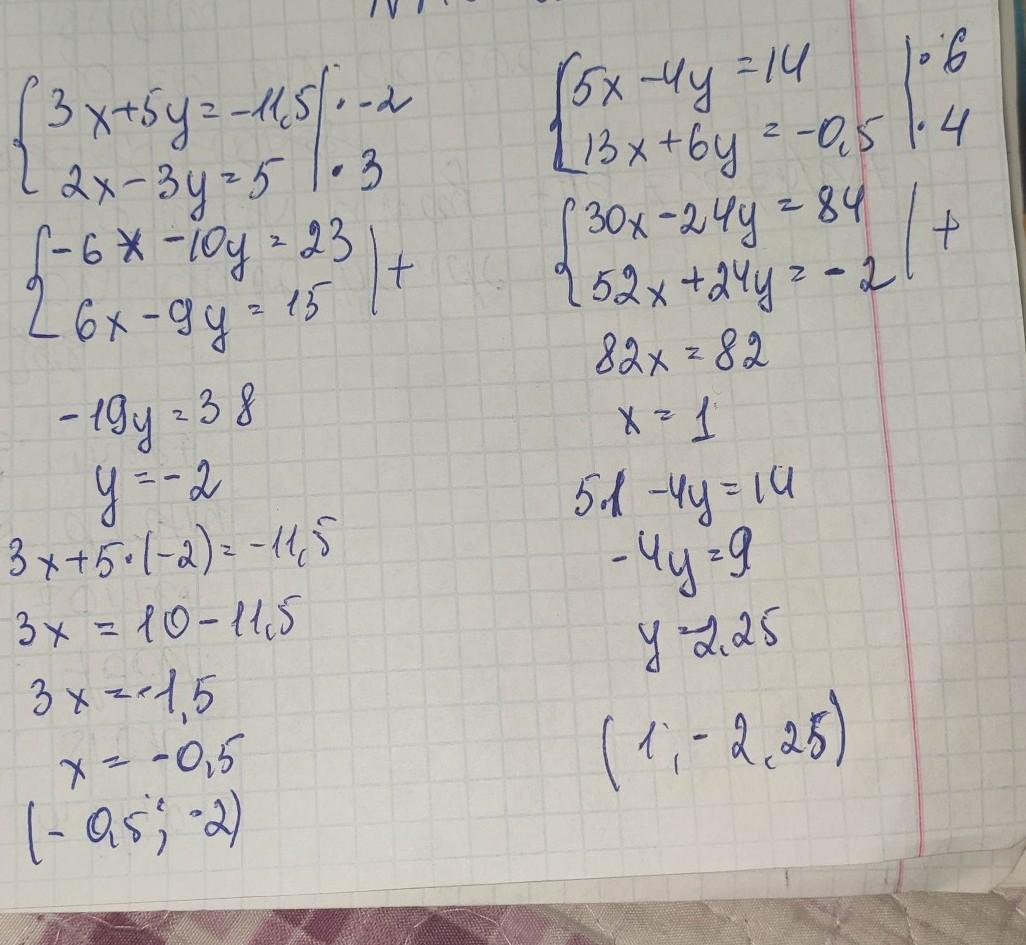 3x+5y=-11,5 | · -2
2x-3y=5 | · 3
-6x-10y=23 | +
6x-9y=15
-19y=38
y=-2
3x+5·(-2)=-11,5
3x=10-11,5
3x=-1,5
x=-0,5
(-0,5; -2)
5x-4y=14 | · 6
13x+6y=-0,5 | · 4
30x-24y=84 | +
52x+24y=-2
82x=82
x=1
5·1-4y=14
-4y=9
y=-2,25
(1; -2,25)